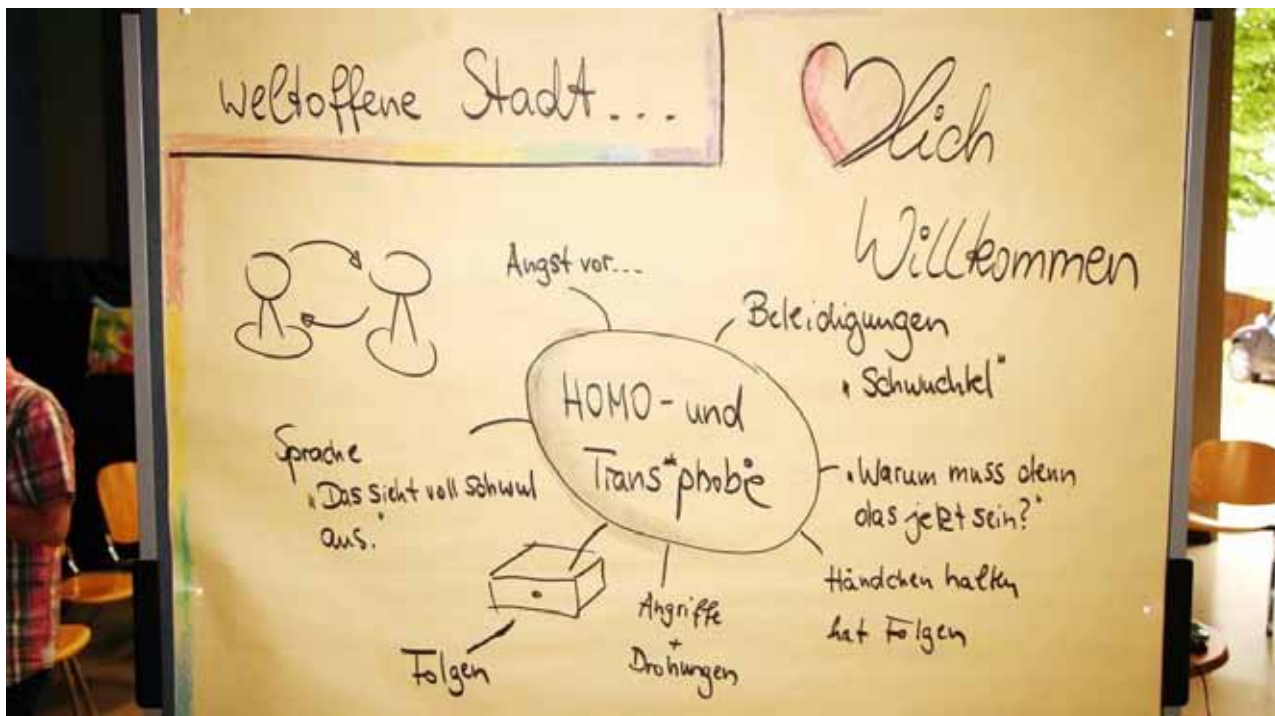 weltoffene Stadt...
lich
Willkommen
Angst vor...
Beleidigungen
"Schwuchtel"
HOMO- und
Trans*phobie
Sprache
"Das sieht voll schwul
aus."
"Warum muss denn
das jetzt sein?"
Händchen halten
hat Folgen
Angriffe
+
Drohungen
Folgen